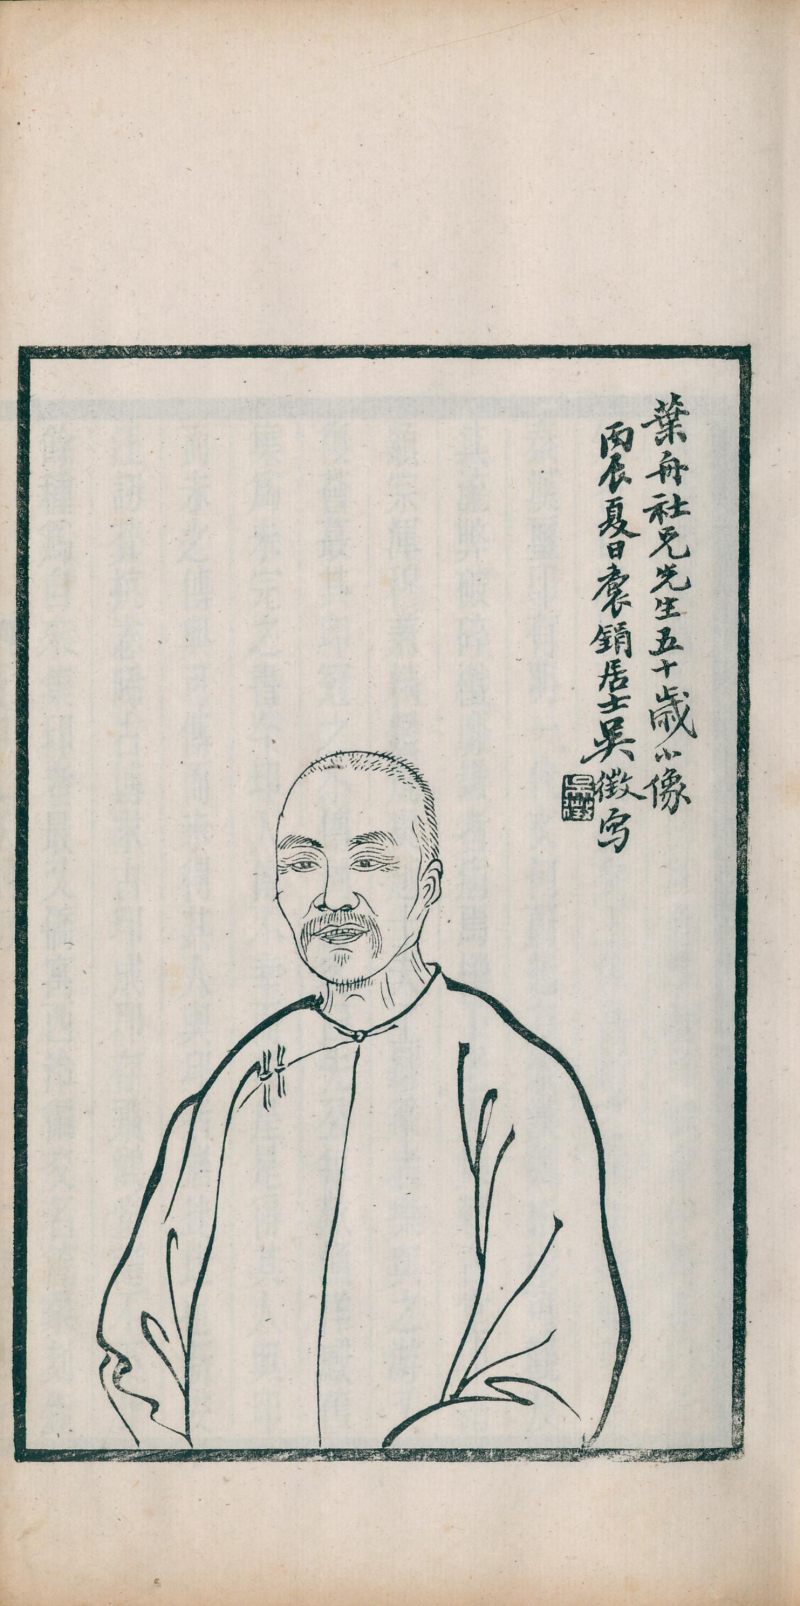 葉舟社兄先生五十歲小像
丙辰夏日袌鋗居士吳徵写
吳徵